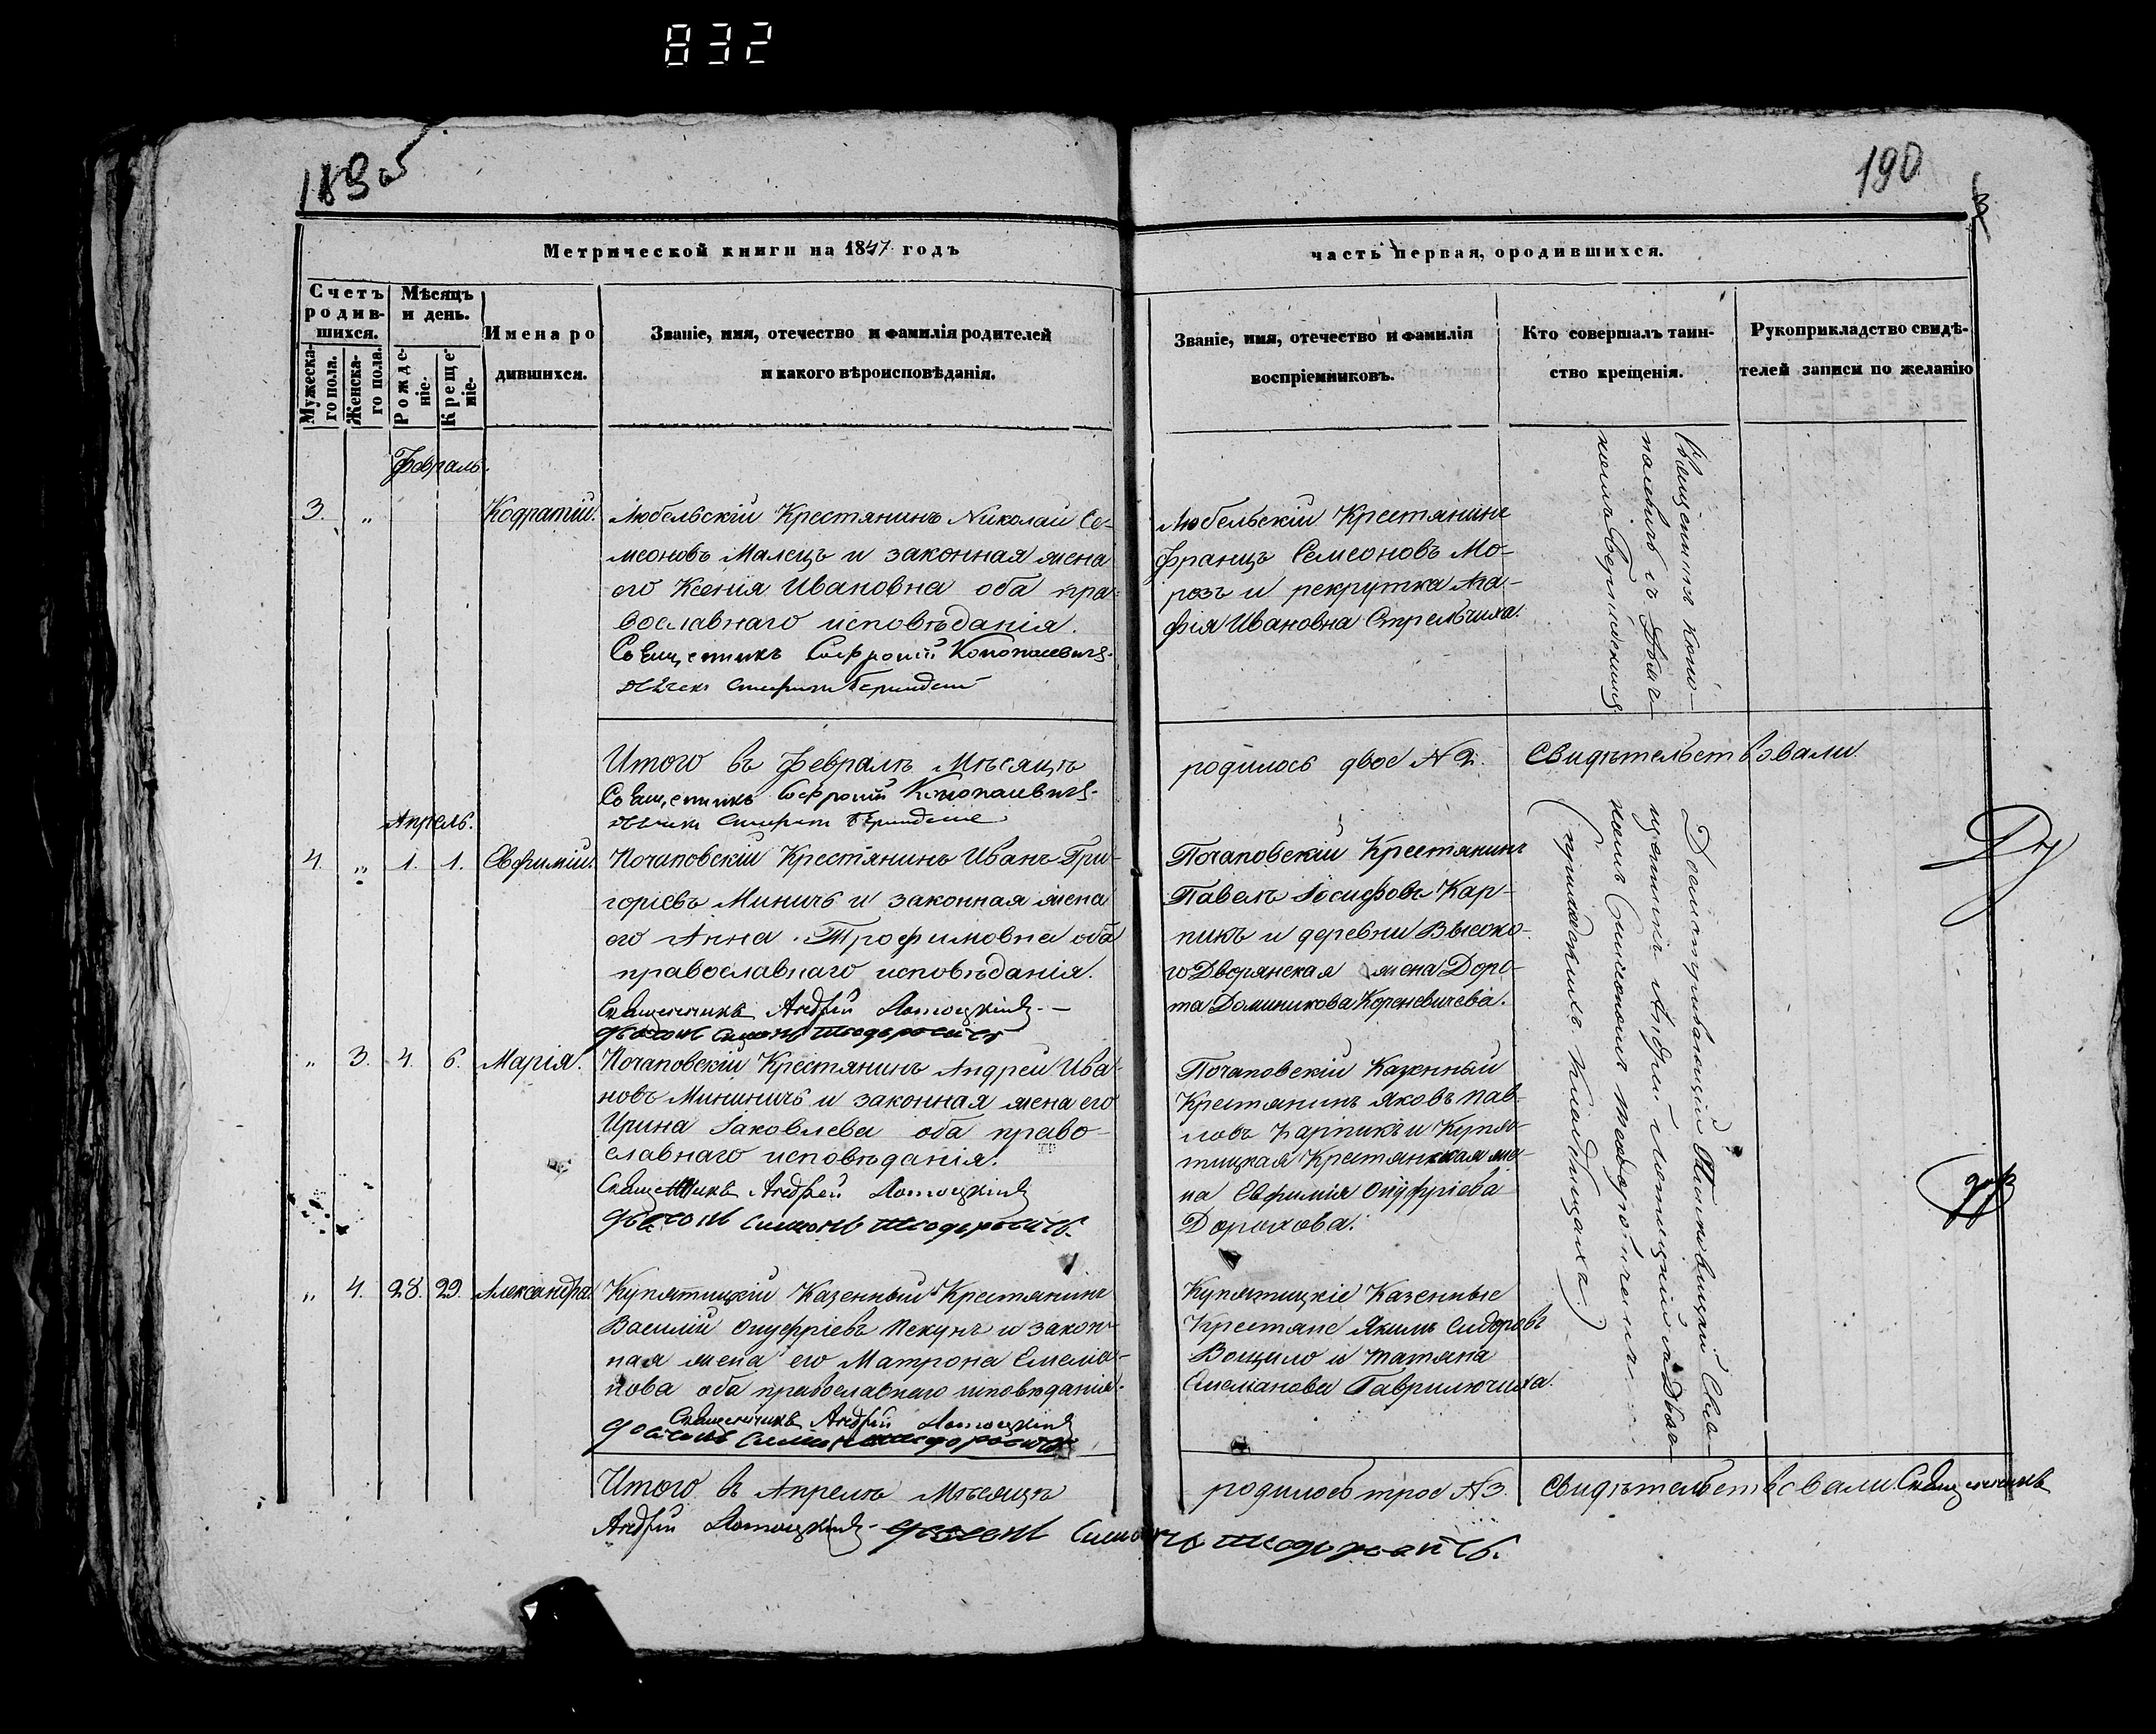 832
189 об
190
3
Метрической книги на 1847 годъ
часть первая, о родившихся.
Счетъ родив-
шихся.
Мужеска-
го пола.
Женска-
го пола.
Мѣсяцъ
и день.
Рожде-
ніе.
Креще-
ніе.
Имена ро
дившихся.
Званіе, имя, отечество и фамилія родителей
и какого вѣроисповѣданія.
Званіе, имя, отечество и фамилія
воспріемниковъ.
Кто совершалъ таин-
ство крещенія.
Рукоприкладство свидѣ-
телей записи по желанію
Февраль.
3. „ Кодратій.
Любельскій Крестянинъ Николай Се-
меоновъ Малецъ и законная жена
его Ксенія Ивановна оба пра-
вославнаго исповѣданія.
Священникъ Софроній
Любельскій Крестянинъ
Францъ Семеоновъ Мо-
розъ и рекрутка Ага-
фія Ивановна Стрельчиха.
Священникъ
съ Дьяч-
Итого въ Февралѣ Мѣсяцѣ
родилось двое № 2.
Свидѣтельствовали.
Священникъ Софроній
Апрель.
4. „ 1. 1. Евфимій.
Почаповскій Крестянинъ Иванъ Гри-
горіевъ Миничъ и законная жена
его Анна Трофимовна оба
православнаго исповѣданія.
Священникъ Андрей Лотоцкій
Почаповскій Крестянинъ
Павелъ Іосифовъ Кар-
пикъ и деревни Высоко-
го Дворянская жена Доро-
та Доминикова Кореневичева.
„ 3. 4. 6. Марія.
Почаповскій Крестянинъ Андрей Ива-
новъ Мининичъ и законная жена его
Ирина Іаковлева оба право-
славнаго исповѣданія.
Священникъ Андрей Лотоцкій
Почаповскій Казенный
Крестянинъ Яковъ Пав-
ловъ Карпикъ и Купя-
тицкая Крестянская же-
на Евфимія Онуфріева
Дорохова.
„ 4. 28. 29. Александра.
Купятицкій Казенный Крестянинъ
Василій Онуфріевъ Пекунъ и закон-
ная жена его Матрона Емеліа-
нова оба православнаго исповѣданія.
Священникъ Андрей Лотоцкій
Купятицкіе Казенные
Крестяне Якимъ Сидоровъ
Вощило и Татяна
Емеліанова Гаврилючиха.
Свя-
щенникъ Андрей Лотоцкій съ Дьяч-
Итого въ Апрелѣ Мѣсяцѣ
родилось трое № 3.
Свидѣтельствовали Священникъ
Андрей Лотоцкій